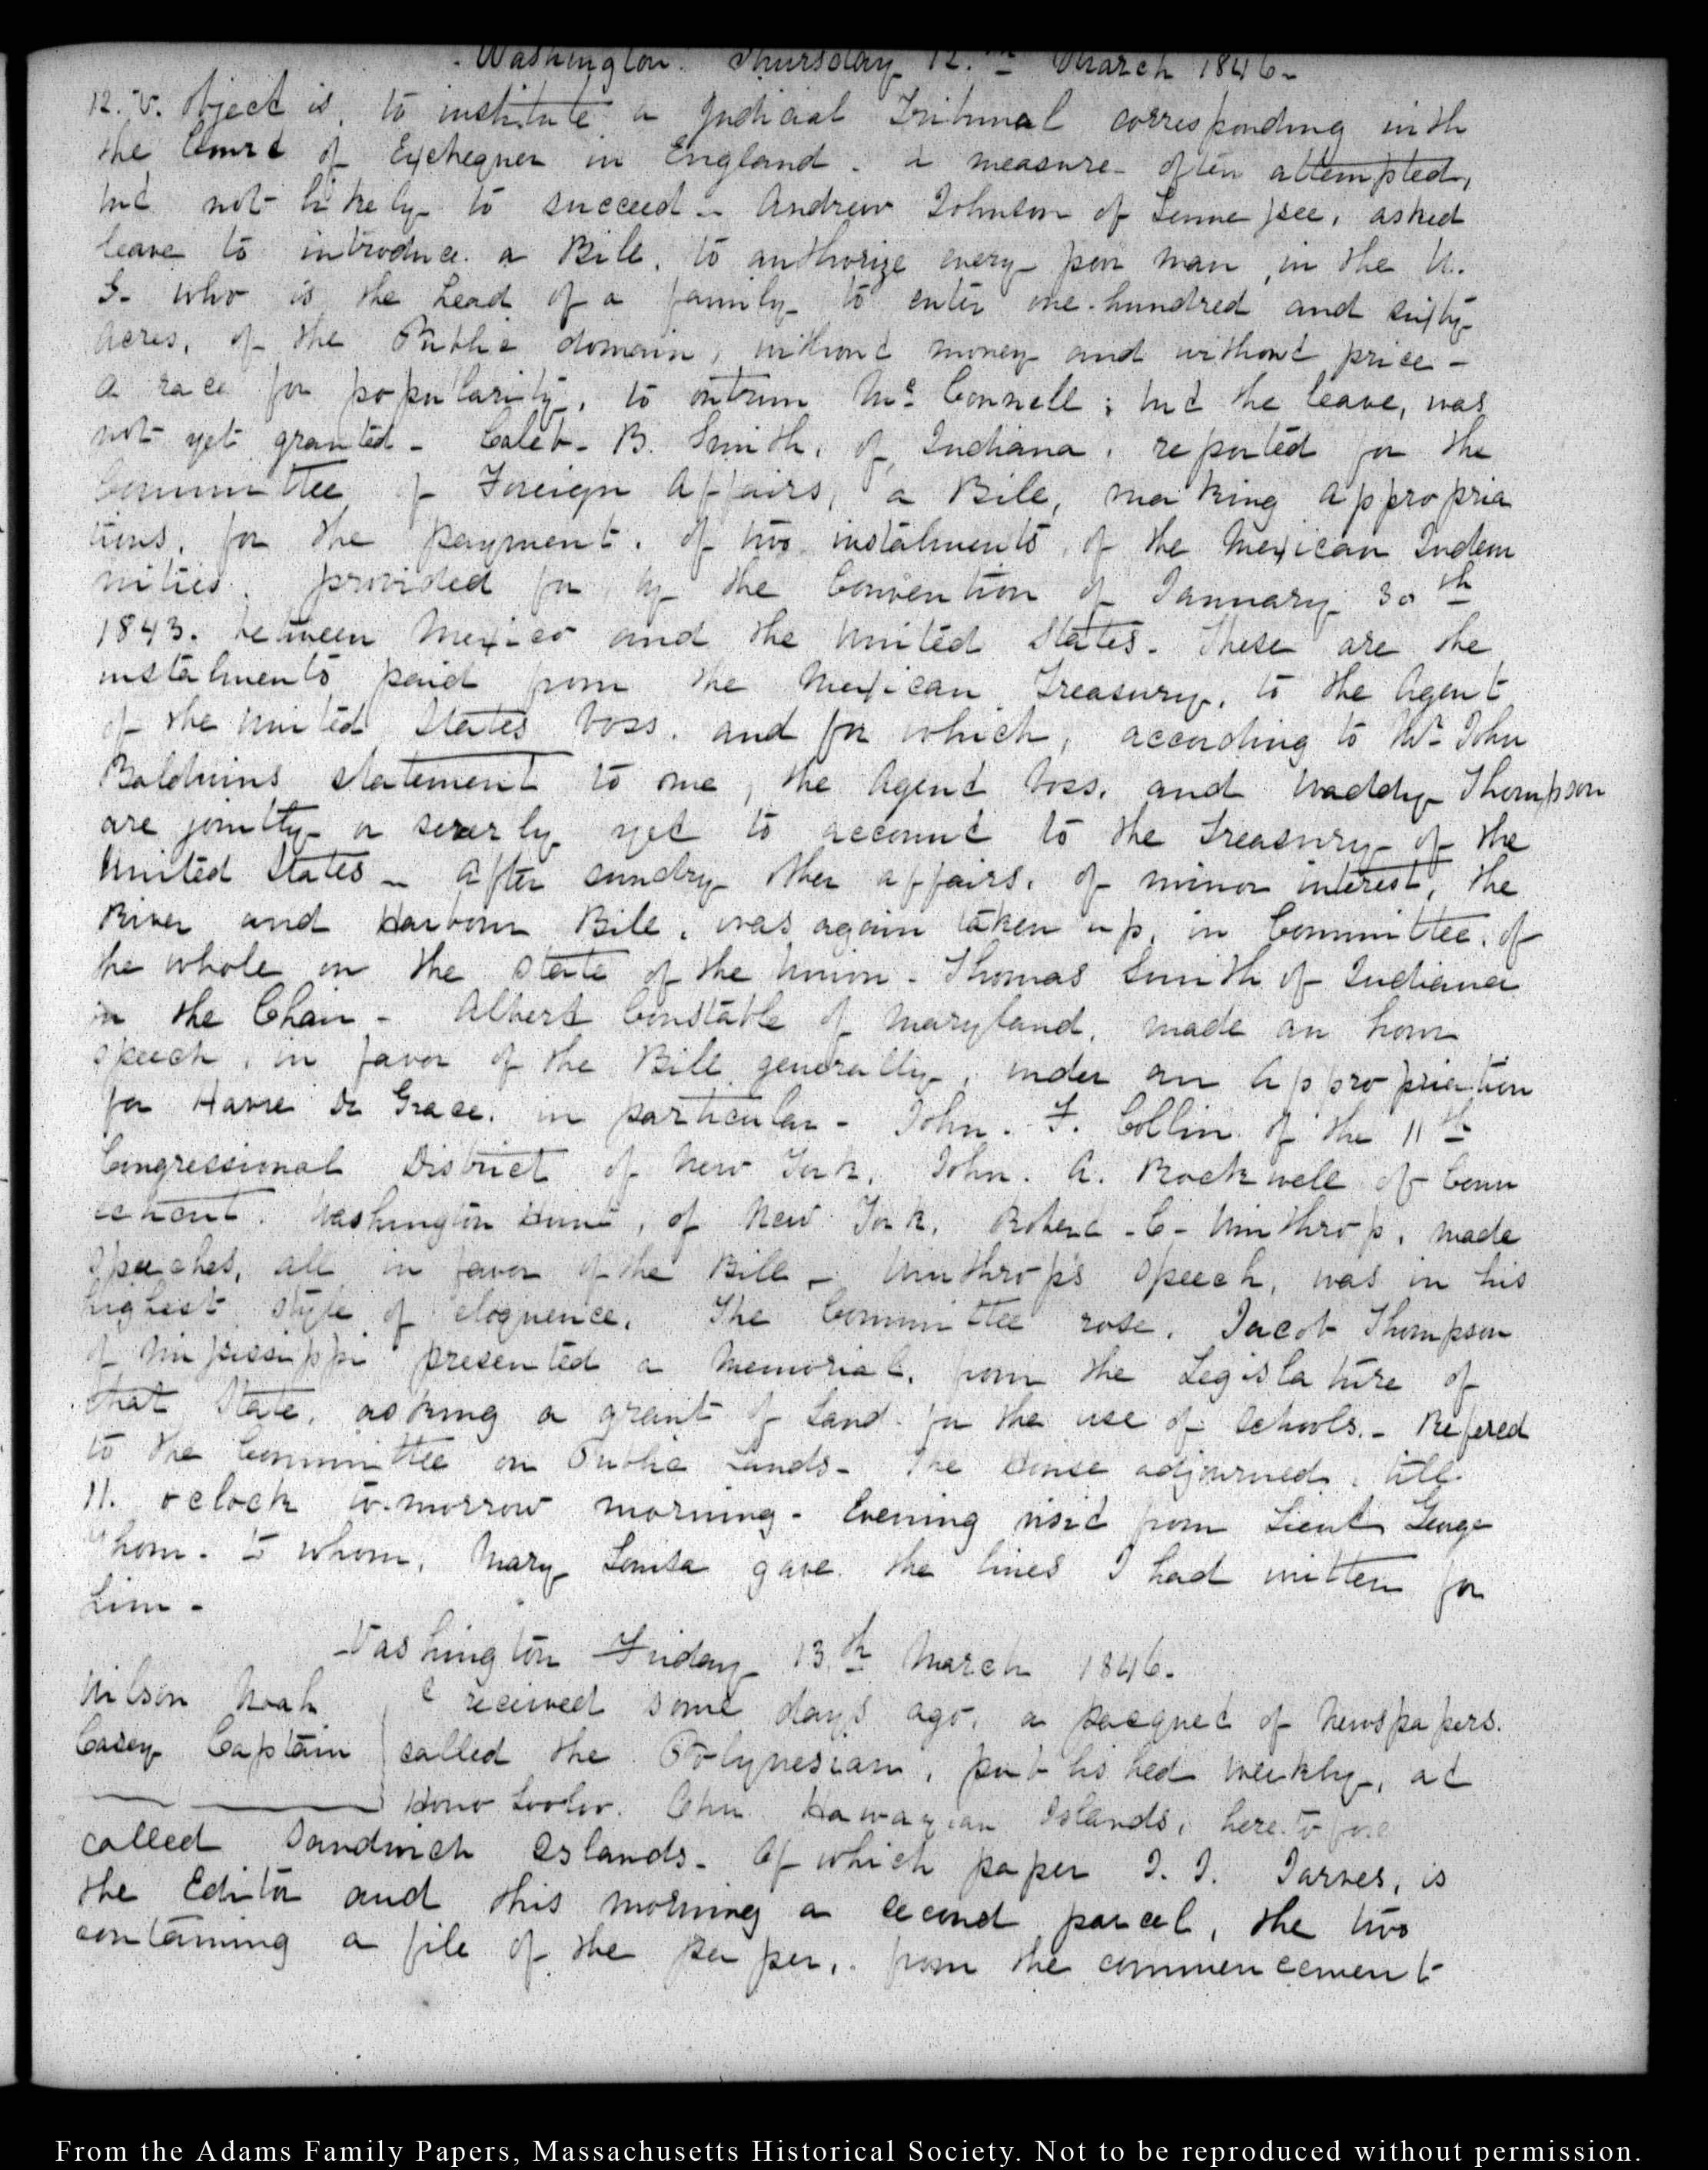 Washington. Thursday 12.th March 1846.
12. V. object is, to institute a Judicial Tribunal corresponding with
the Court of Exchequer in England. a measure often attempted,
but not likely to succeed. Andrew Johnson of Tennessee, asked
leave to introduce a Bill, to authorize every poor man in the U.
S. who is the head of a family to enter one hundred and sixty
acres, of the Public domain, without money and without price—
a race for popularity, to outrun Mc. Connell; but the leave, was
not yet granted— Caleb. B. Smith, of Indiana, reported for the
Committee of Foreign Affairs, a Bill, making appropria
tions, for the payment, of two instalments, of the Mexican Indem
nities. provided for, by the Convention of January 30th
1843. between Mexico and the United States. These are the
instalments paid from the Mexican Treasury, to the Agent
of the United States Voss. and for which, according to Mr John
Baldwins statement to me, the Agent Voss. and Waddy Thompson
are jointly or severly yet to account to the Treasury of the
United States— After sundry other affairs, of minor interest, the
River and Harbour Bill, was again taken up, in Committee, of
the whole on the State of the Union. Thomas Smith of Indiana
in the Chair— Albert Constable of Maryland, made an hour
speech, in favor of the Bill generally, under an appropriation
for Havre de Grace, in particular— John. F. Collin of the 11th
Congressional District of New York, John. A. Rockwell of Conn
ecticut. Washington Hunt, of New York, Robert. C. Winthrop, made
speeches, all in favor of the Bill— Winthrop's speech, was in his
highest style of eloquence. The Committee rose. Jacob Thompson
of Mississippi presented a Memorial, from the Legislature of
that State, asking a grant of Land for the use of Schools.— Refered
to the Committee on Public Lands— The House adjourned till
11. oclock to-morrow morning— Evening visit from Lieut George
Thom. to whom, Mary Louisa gave the lines I had written for
him—
Washington Friday 13.th March 1846.
Wilson Noah I received some days ago, a pacquet of Newspapers.
Casey Captain called the Polynesian, published weekly, at
Hono looloo. Ohu Hawayian Islands, heretofore
called Sandwich Islands. Of which paper J. J. Jarves, is
the Editor and this morning a second parcel, the two
containing a file of the paper, from the commencement
From the Adams Family Papers, Massachusetts Historical Society. Not to be reproduced without permission.